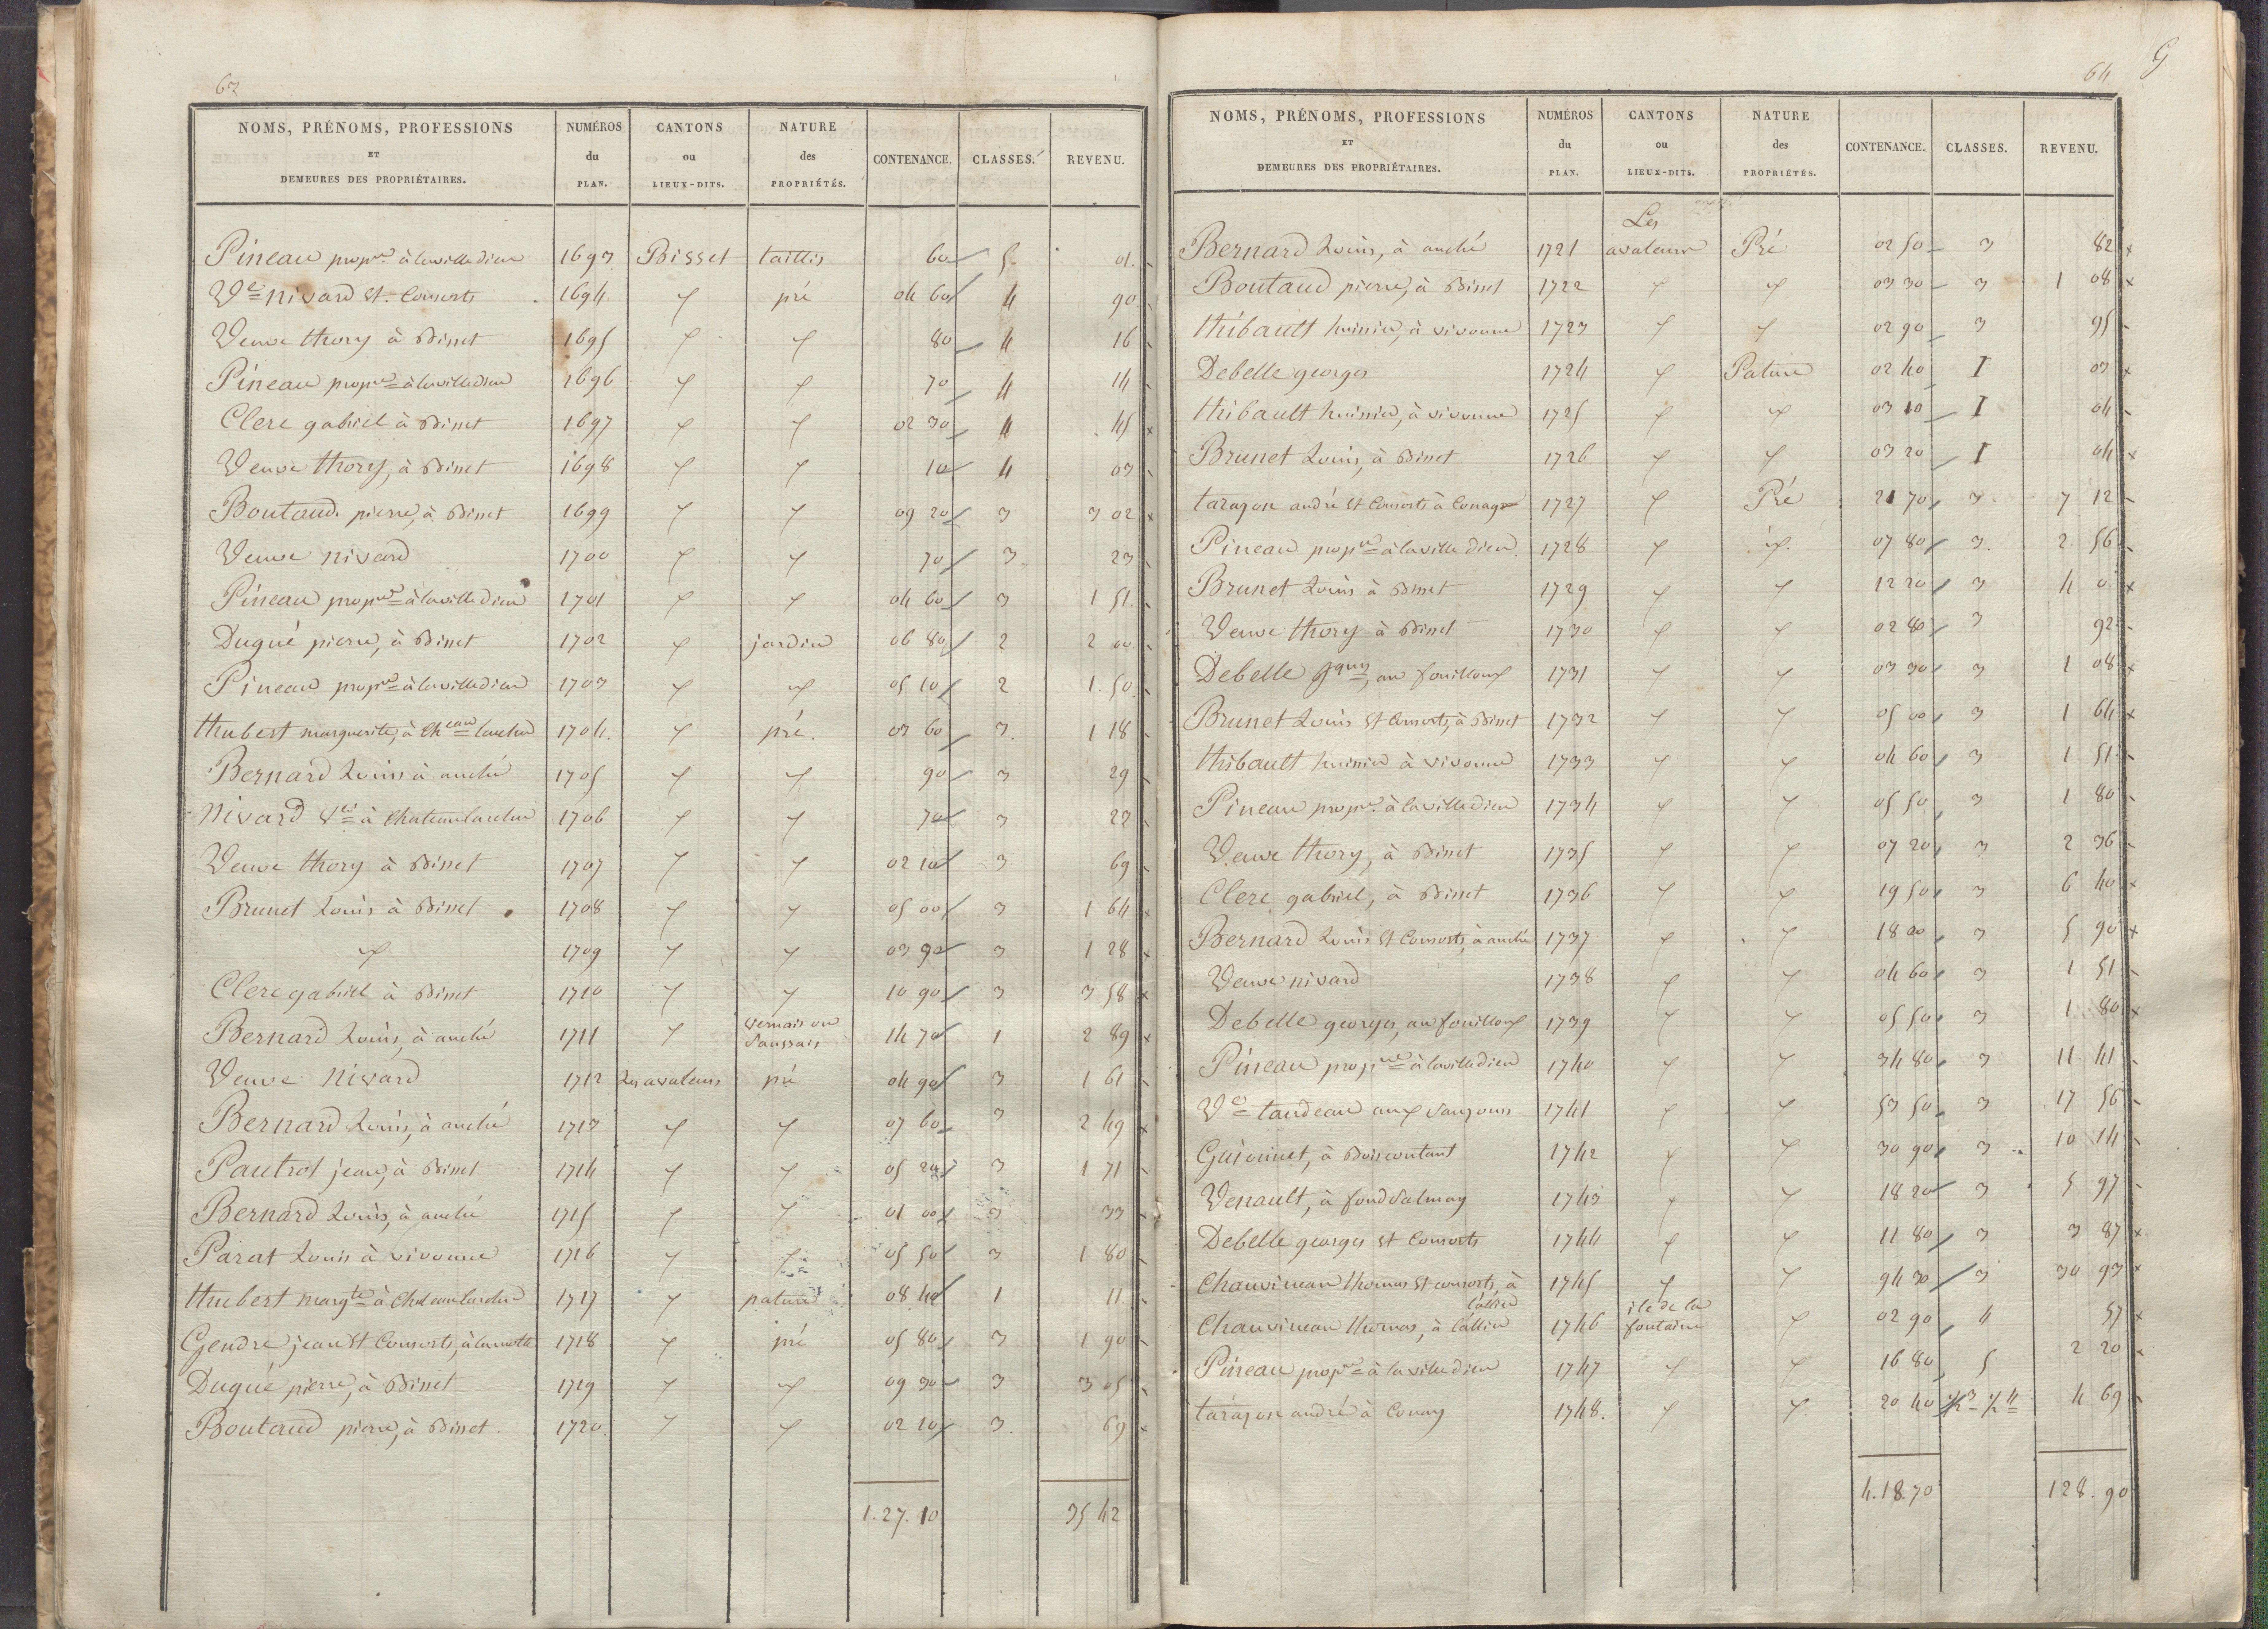 63
NOMS, PRÉNOMS, PROFESSIONS ET DEMEURES DES PROPRIÉTAIRES. NUMÉROS du PLAN. CANTONS ou LIEUX-DITS. NATURE des PROPRIÉTÉS. CONTENANCE. CLASSES. REVENU.
Pineau propre à lavilledieu 1693 Bisset taillis 60 5 01
Ve nivard et Consorts 1694 〃 pré 04 60 4 90
Veuve thory à Bisset 1695 〃 〃 80 4 16
Pineau propre à lavilledieu 1696 〃 〃 70 4 14
Clerc gabriel à Bisset 1697 〃 〃 02 30 4 45
Veuve thory, à Bisset 1698 〃 〃 10 4 03
Boutaud pierre, à Bisset 1699 〃 〃 09 20 3 3 02
Veuve nivard 1700 〃 〃 70 3 23
Pineau propre à lavilledieu 1701 〃 〃 04 60 3 1 51
Dugué pierre, à Bisset 1702 〃 jardin 06 80 2 2 00
Pineau propre à lavilledieu 1703 〃 〃 05 10 2 1.50
hubert marguerite, à Cheau larcher 1704 〃 pré 03 60 3 1 18
Bernard Louis à anché 1705 〃 〃 90 3 29
Nivard Ve à Chateaularcher 1706 〃 〃 70 3 23
Veuve thory à Bisset 1707 〃 〃 02 10 3 69
Brunet Louis à Bisset 1708 〃 〃 05 00 3 1 64
〃 1709 〃 〃 03 90 3 1 28
Clerc gabriel à Bisset 1710 〃 〃 10 90 3 3 58
Bernard Louis, à anché 1711 〃 vernais ou Saussais 14 70 1 2 89
Veuve Nivard 1712 Les avaleurs pré 04 90 3 1 61
Bernard Louis, à anché 1713 〃 〃 07 60 3 2 49
Pautrot jean, à Bisset 1714 〃 〃 05 20 3 1 71
Bernard Louis, à anché 1715 〃 〃 01 00 3 33
Parat Louis à vivonne 1716 〃 〃 05 50 3 1 80
hubert margte à Chateaularcher 1717 〃 pature 08 40 1 11
Gendre jean et Consorts, à lamotte 1718 〃 pré 05 80 3 1 90
Dugué pierre, à Bisset 1719 〃 〃 09 30 3 3 05
Boutaud pierre, à Bisset 1720 〃 〃 02 10 3 69
1.27.10 35 42
64
G
NOMS, PRÉNOMS, PROFESSIONS ET DEMEURES DES PROPRIÉTAIRES. NUMÉROS du PLAN. CANTONS ou LIEUX-DITS. NATURE des PROPRIÉTÉS. CONTENANCE. CLASSES. REVENU.
Bernard Louis, à anché 1721 Les avaleurs Pré 02 50 3 82
Boutaud pierre, à Bisset 1722 〃 〃 03 30 3 1 08
thibault huissier, à vivonne 1723 〃 〃 02 90 3 95
Debelle georges 1724 〃 Pature 02 40 1 03
thibault huissier, à vivonne 1725 〃 〃 03 10 1 04
Brunet Louis, à Bisset 1726 〃 〃 03 20 1 04
tarazon andré et Consorts à Couay 1727 〃 Pré 21 70 3 7 12
Pineau propre à laville dieu 1728 〃 〃 07 80 3 2 56
Brunet Louis à Bisset 1729 〃 〃 12 20 3 4 0
Veuve thory à Bisset 1730 〃 〃 02 80 3 92
Debelle Jques, au fouilloux 1731 〃 〃 03 30 3 1 08
Brunet Louis et Consorts, à Bisset 1732 〃 〃 05 00 3 1 64
thibault huissier à vivonne 1733 〃 〃 04 60 3 1 51
Pineau propre à lavilledieu 1734 〃 〃 05 50 3 1 80
Veuve thory, à Bisset 1735 〃 〃 07 20 3 2 36
Clerc gabriel, à Bisset 1736 〃 〃 19 50 3 6 40
Bernard Louis et Consorts, à anché 1737 〃 〃 18 00 3 5 90
Veuve nivard 1738 〃 〃 04 60 3 1 51
Debelle georges, au fouilloux 1739 〃 〃 05 50 3 1 80
Pineau propre à lavilledieu 1740 〃 〃 34 80 3 11 41
Ve taudeau aux 1741 〃 〃 53 50 3 17 56
Guionnet, à Boiscoutant 1742 〃 〃 30 90 3 10 14
Venault, à fondsalmay 1743 〃 〃 18 20 3 5 97
Debelle georges et Consorts 1744 〃 〃 11 80 3 3 87
Chauvineau thomas et consorts, à l'allier 1745 〃 〃 94 30 3 30 93
Chauvineau thomas, à l'allier 1746 ile de la fontaine 〃 02 90 4 57
Pineau propre à laville dieu 1747 〃 〃 16 80 5 2 20
tarazon andré à Couay 1748 〃 〃 20 40 1/2 3 1/2 4 4 69
4.18.70 128.90